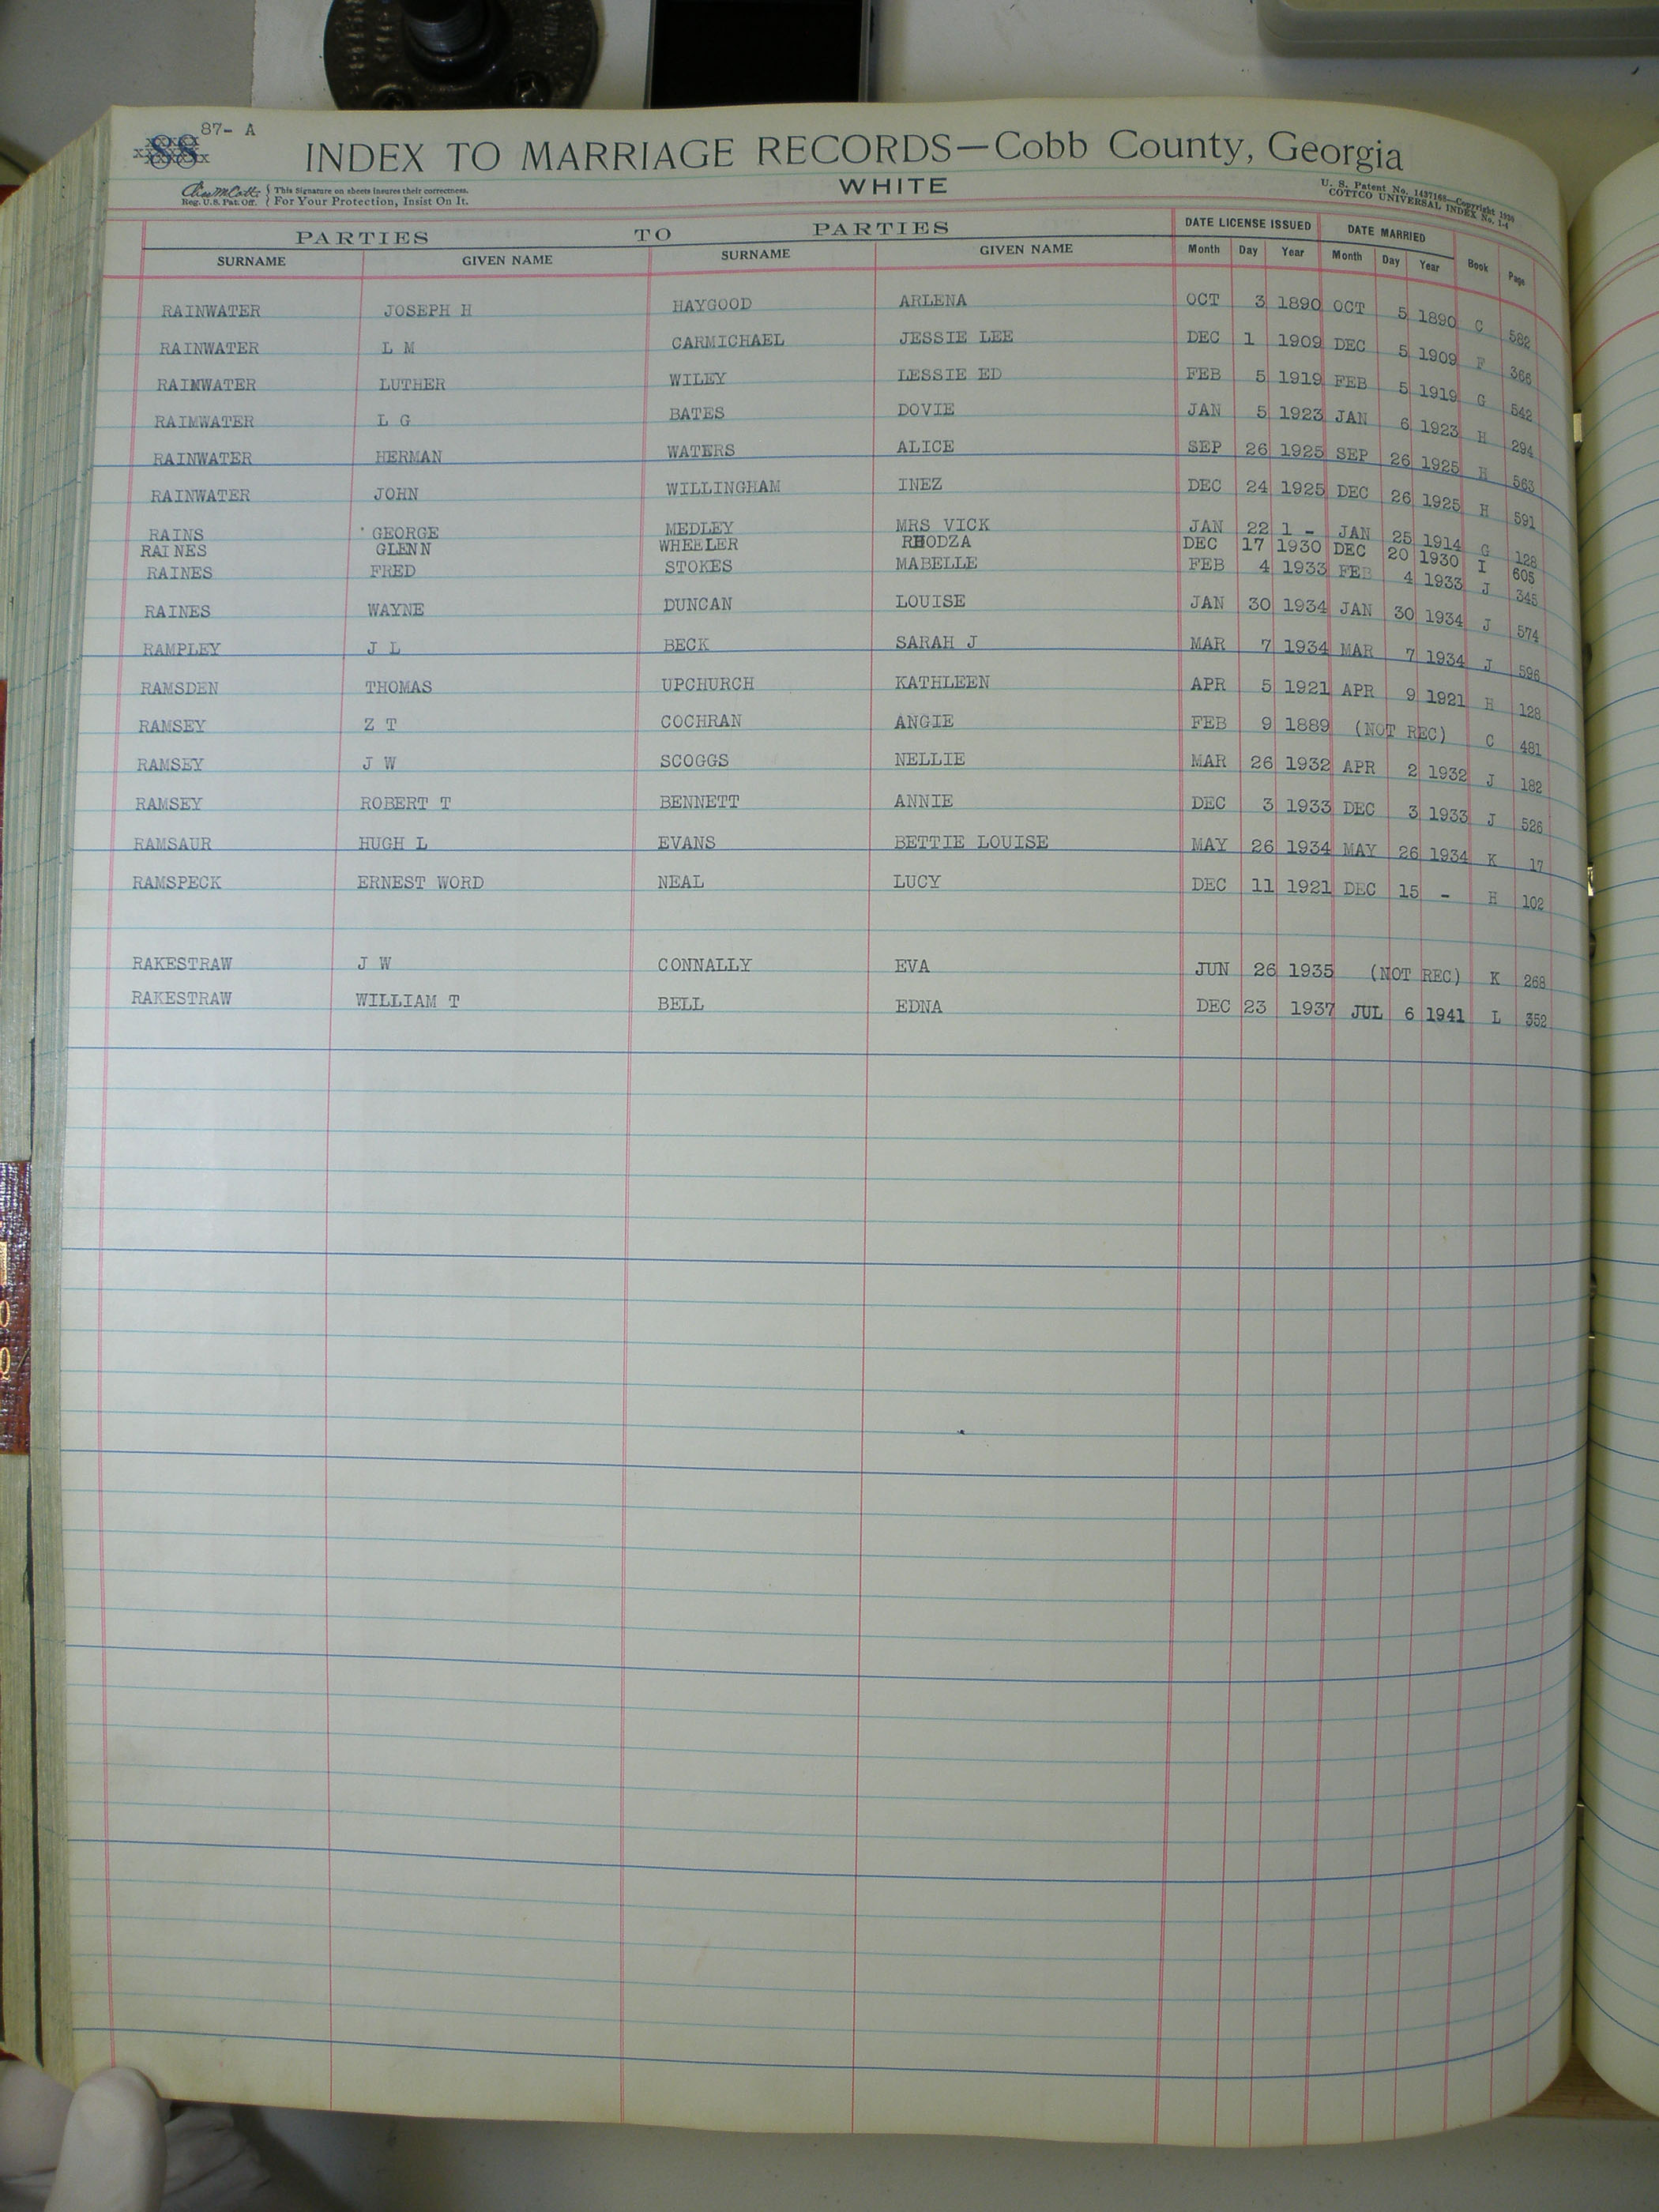 87- A
88
INDEX TO MARRIAGE RECORDS—Cobb County, Georgia
WHITE
Reg. U.S. Pat. Off. This Signature on sheets insures their correctness. For Your Protection, Insist On It.
U. S. Patent No. 1437168—Copyright 1930
COTTCO UNIVERSAL INDEX No. 1-4
PARTIES TO PARTIES DATE LICENSE ISSUED DATE MARRIED
SURNAME GIVEN NAME SURNAME GIVEN NAME Month Day Year Month Day Year Book Page
RAINWATER JOSEPH H HAYGOOD ARLENA OCT 3 1890 OCT 5 1890 C 582
RAINWATER L M CARMICHAEL JESSIE LEE DEC 1 1909 DEC 5 1909 F 366
RAIMWATER LUTHER WILEY LESSIE ED FEB 5 1919 FEB 5 1919 G 542
RAIMWATER L G BATES DOVIE JAN 5 1923 JAN 6 1923 H 294
RAINWATER HERMAN WATERS ALICE SEP 26 1925 SEP 26 1925 H 563
RAINWATER JOHN WILLINGHAM INEZ DEC 24 1925 DEC 26 1925 H 591
RAINS GEORGE MEDLEY MRS VICK JAN 22 1 - JAN 25 1914 G 128
RAINES GLENN WHEELER RHODZA DEC 17 1930 DEC 20 1930 I 605
RAINES FRED STOKES MABELLE FEB 4 1933 FEB 4 1933 J 345
RAINES WAYNE DUNCAN LOUISE JAN 30 1934 JAN 30 1934 J 574
RAMPLEY J L BECK SARAH J MAR 7 1934 MAR 7 1934 J 596
RAMSDEN THOMAS UPCHURCH KATHLEEN APR 5 1921 APR 9 1921 H 128
RAMSEY Z T COCHRAN ANGIE FEB 9 1889 (NOT REC) C 481
RAMSEY J W SCOGGS NELLIE MAR 26 1932 APR 2 1932 J 182
RAMSEY ROBERT T BENNETT ANNIE DEC 3 1933 DEC 3 1933 J 526
RAMSAUR HUGH L EVANS BETTIE LOUISE MAY 26 1934 MAY 26 1934 K 17
RAMSPECK ERNEST WORD NEAL LUCY DEC 11 1921 DEC 15 - H 102
RAKESTRAW J W CONNALLY EVA JUN 26 1935 (NOT REC) K 268
RAKESTRAW WILLIAM T BELL EDNA DEC 23 1937 JUL 6 1941 L 352